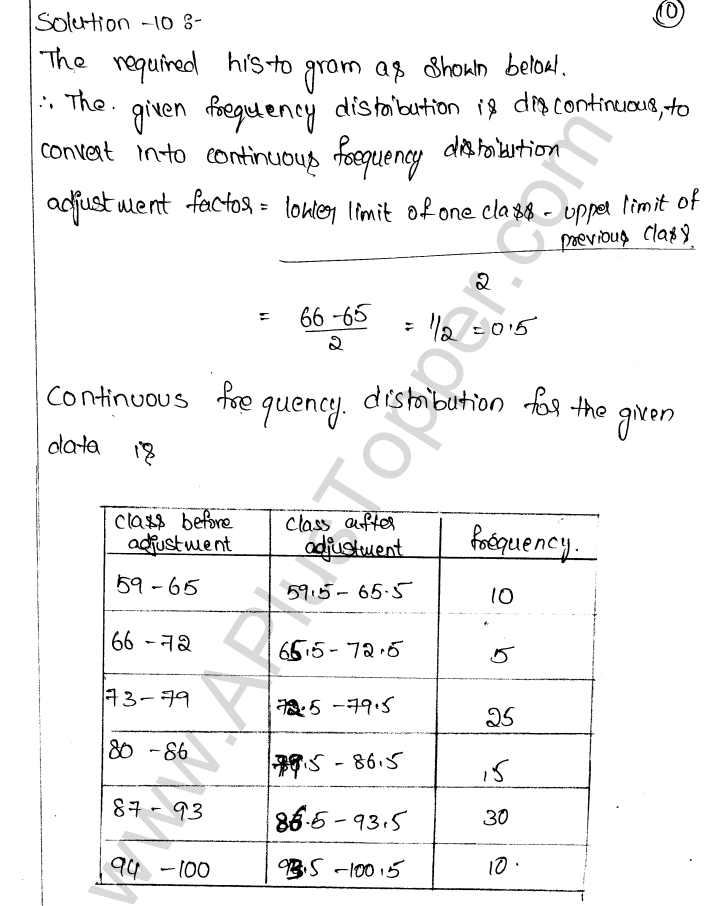 10
Solution -10 :-
The required histo gram as shown below.
∴ The. given frequency distribution is discontinuous, to
convert into continuous frequency distribution
adjustment factor = lower limit of one class - upper limit of
previous class.
2
= 66 - 65 / 2 = 1/2 = 0.5
Continuous fre quency. distribution for the given
data is
class before adjustment | class after adjustment | frequency.
59 - 65 | 59.5 - 65.5 | 10
66 - 72 | 65.5 - 72.5 | 5
73 - 79 | 72.5 - 79.5 | 25
80 - 86 | 79.5 - 86.5 | 15
87 - 93 | 86.5 - 93.5 | 30
94 - 100 | 93.5 - 100.5 | 10.
www.APlusTopper.com